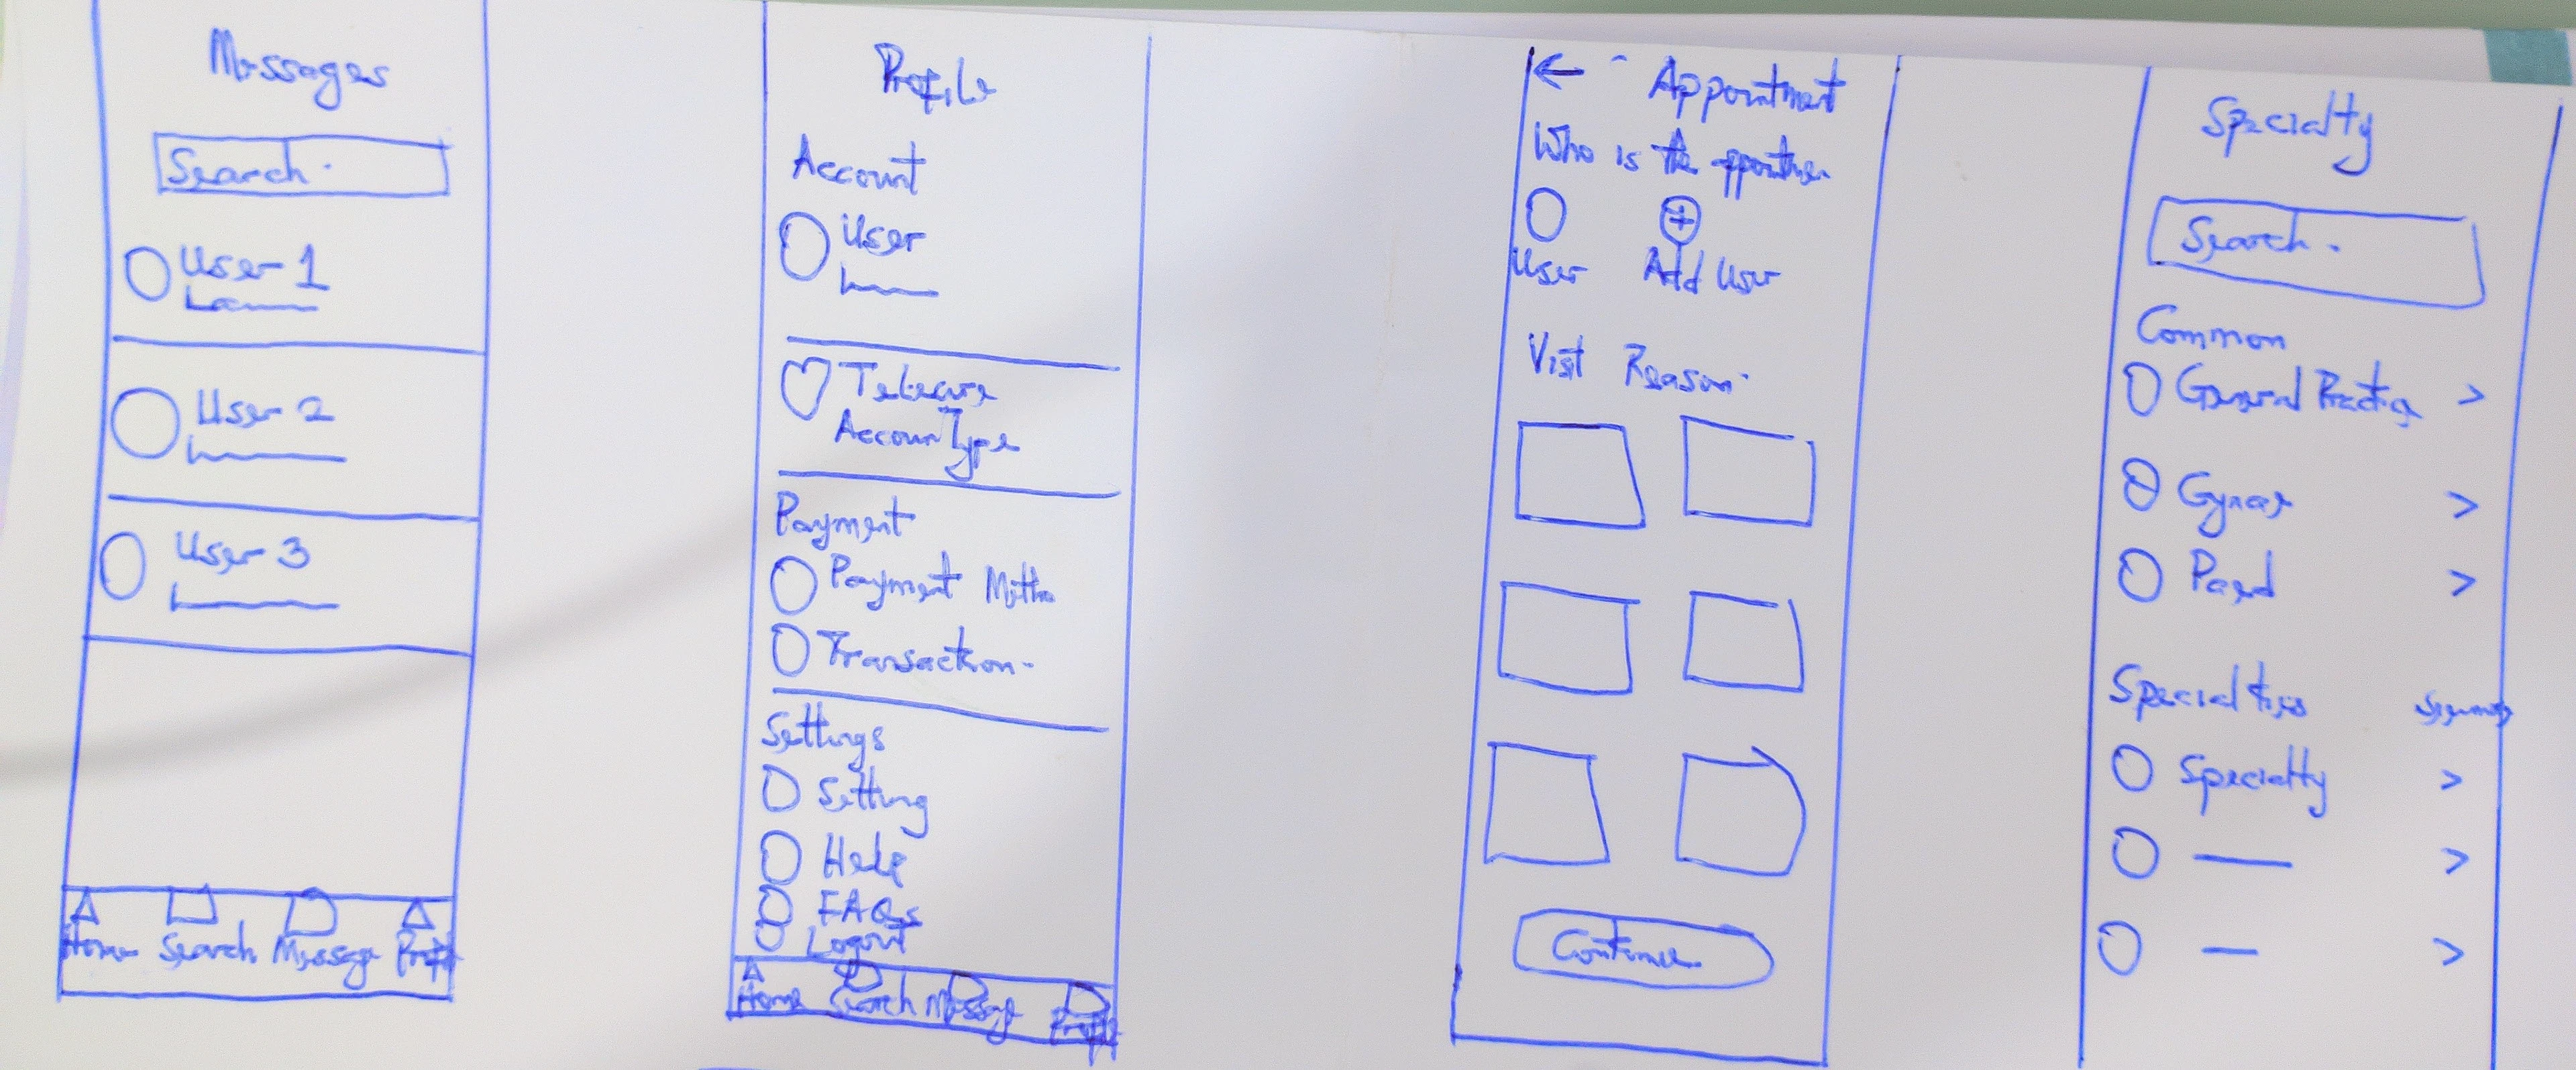 Messages
Search.
User 1
User 2
User 3
Home Search Message Profile
Profile
Account
User
Telecare
Account Type
Payment
Payment Metho
Transaction.
Settings
Setting
Help
FAQs
Logout
Home Search Message Profile
← Appointment
Who is the
User Add User
Visit Reason.
Continue
Specialty
Search.
Common
General Practice >
Gynae >
Paed >
Specialties
Specialty >
>
>